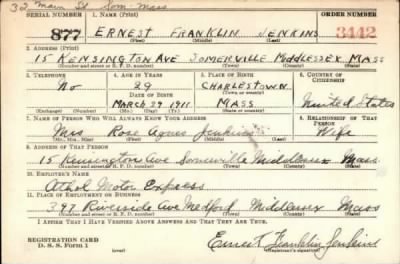 32 Main St Som. Mass
SERIAL NUMBER 1. NAME (Print) ORDER NUMBER
877 ERNEST FRANKLIN JENKINS 3442
(First) (Middle) (Last)
2. ADDRESS (Print)
15 KENSINGTON AVE SOMERVILLE MIDDLESEX MASS
(Number and street or R. F. D. number) (Town) (County) (State)
3. TELEPHONE 4. AGE IN YEARS 5. PLACE OF BIRTH 6. COUNTRY OF CITIZENSHIP
No 29 CHARLESTOWN
DATE OF BIRTH (Town or county)
MARCH 29 1911 MASS United States
(Exchange) (Number) (Mo.) (Day) (Yr.) (State or country)
7. NAME OF PERSON WHO WILL ALWAYS KNOW YOUR ADDRESS 8. RELATIONSHIP OF THAT PERSON
Mrs Rose Agnes Jenkins Wife
(Mr., Mrs., Miss) (First) (Middle) (Last)
9. ADDRESS OF THAT PERSON
15 Kensington Ave Somerville Middlesex Mass
(Number and street or R. F. D. number) (Town) (County) (State)
10. EMPLOYER'S NAME
Athol Motor Express
11. PLACE OF EMPLOYMENT OR BUSINESS
397 Riverside Ave Medford Middlesex Mass
(Number and street or R. F. D. number) (Town) (County) (State)
I AFFIRM THAT I HAVE VERIFIED ABOVE ANSWERS AND THAT THEY ARE TRUE.
REGISTRATION CARD
D. S. S. Form 1 (over) Ernest Franklin Jenkins
(Registrant's signature)